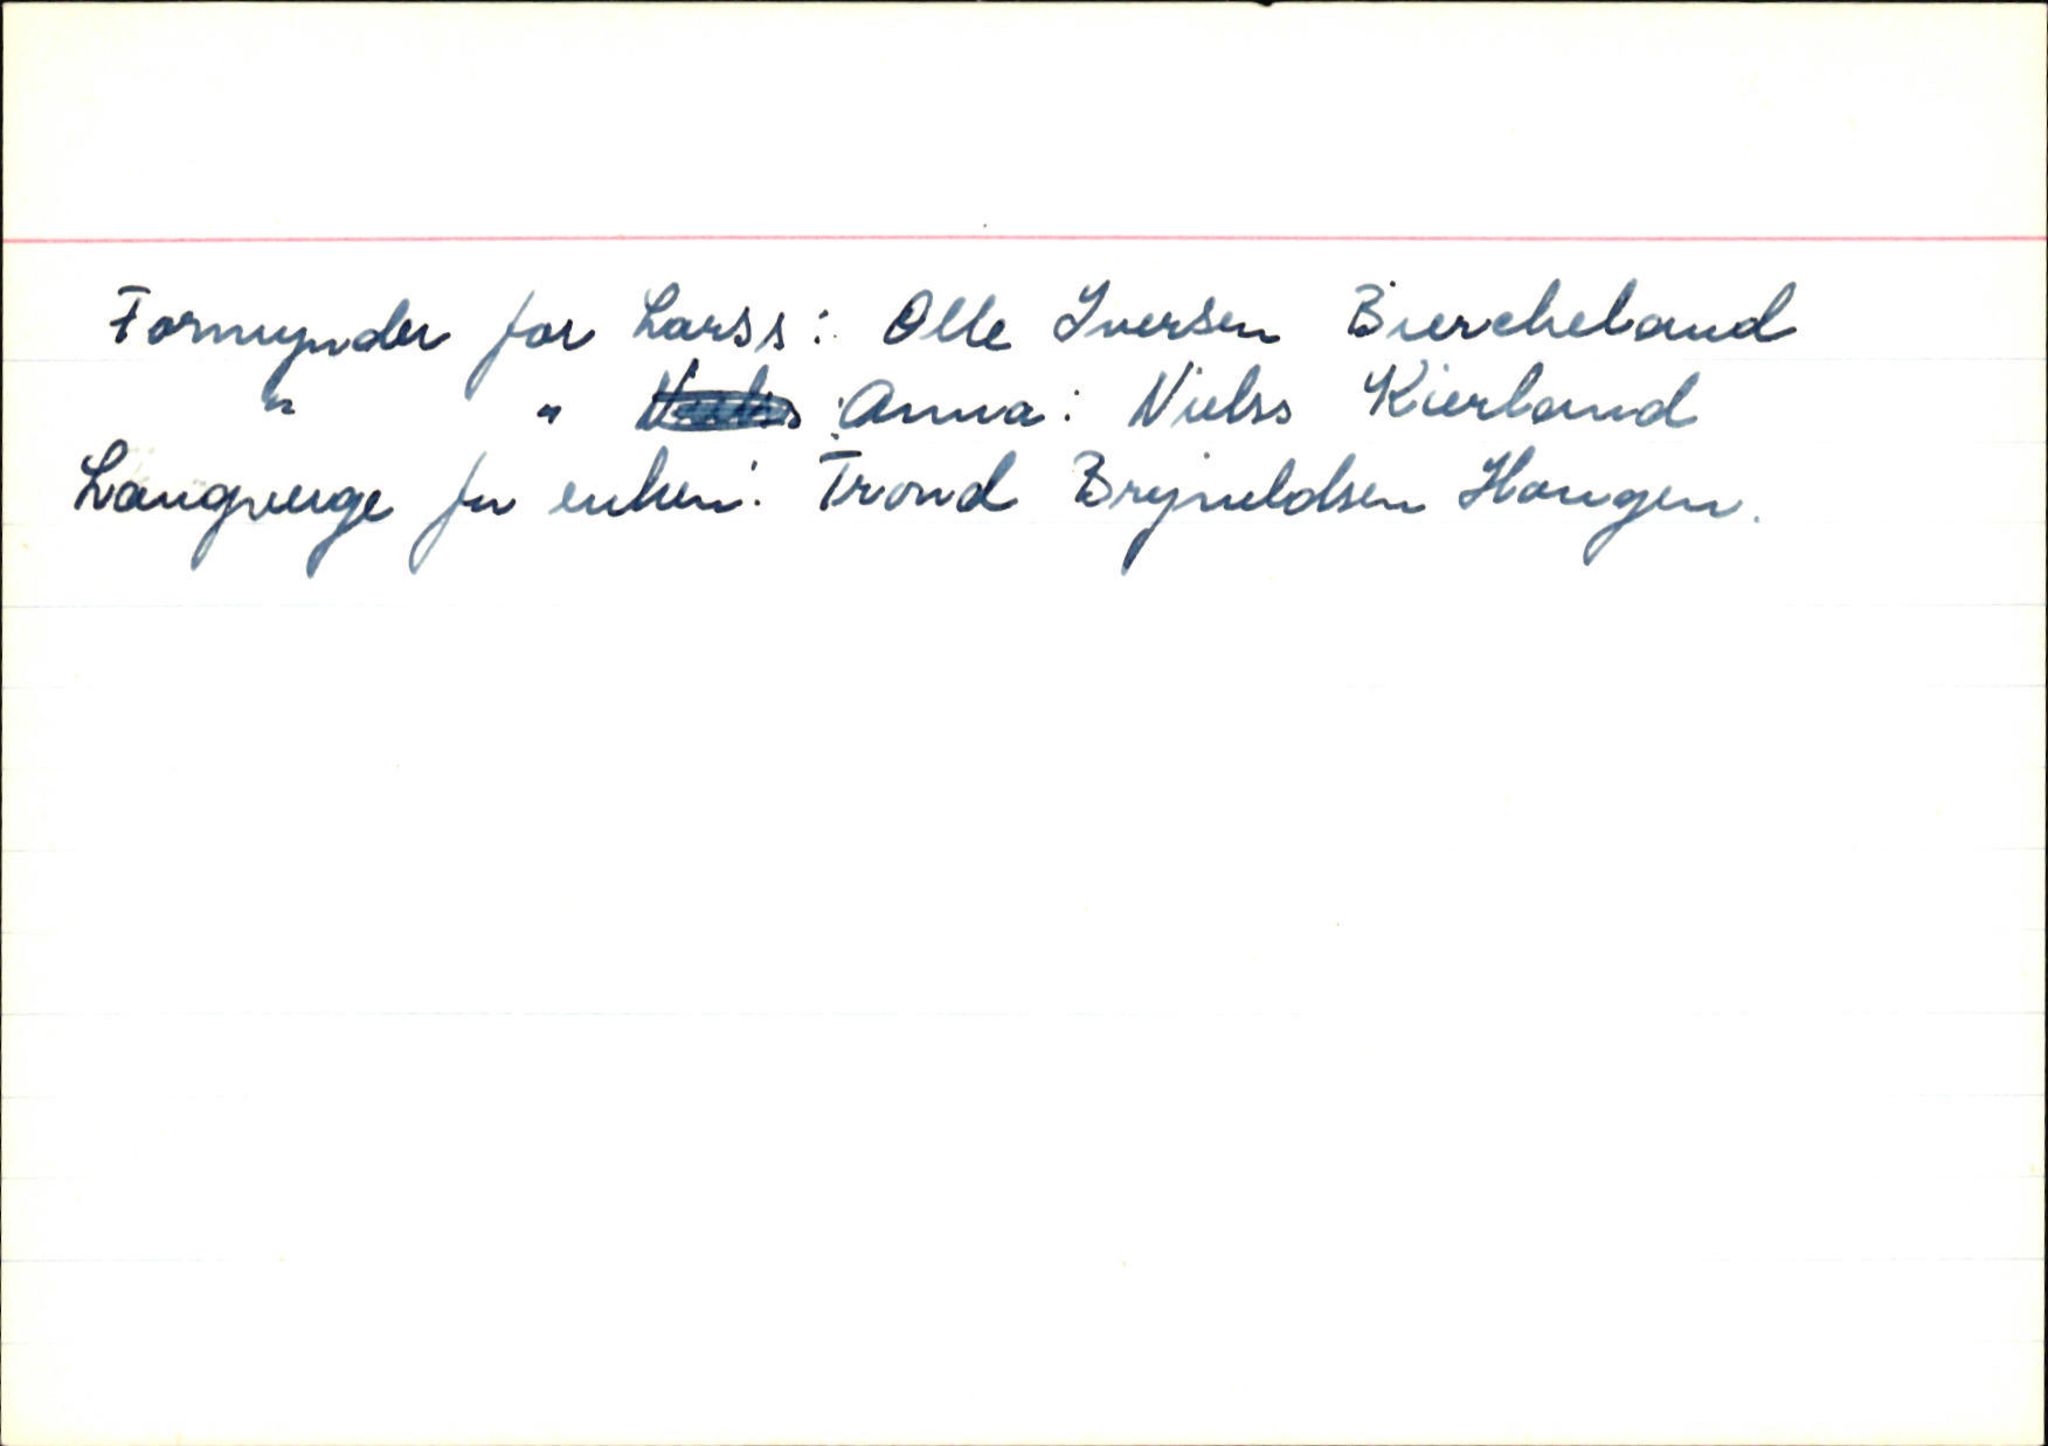 Formynder for Larss: Olle Iversen Biercheland
" " Anna: Nielss Kierland
Laugverge for enken: Trond Brynildsen Haugen.